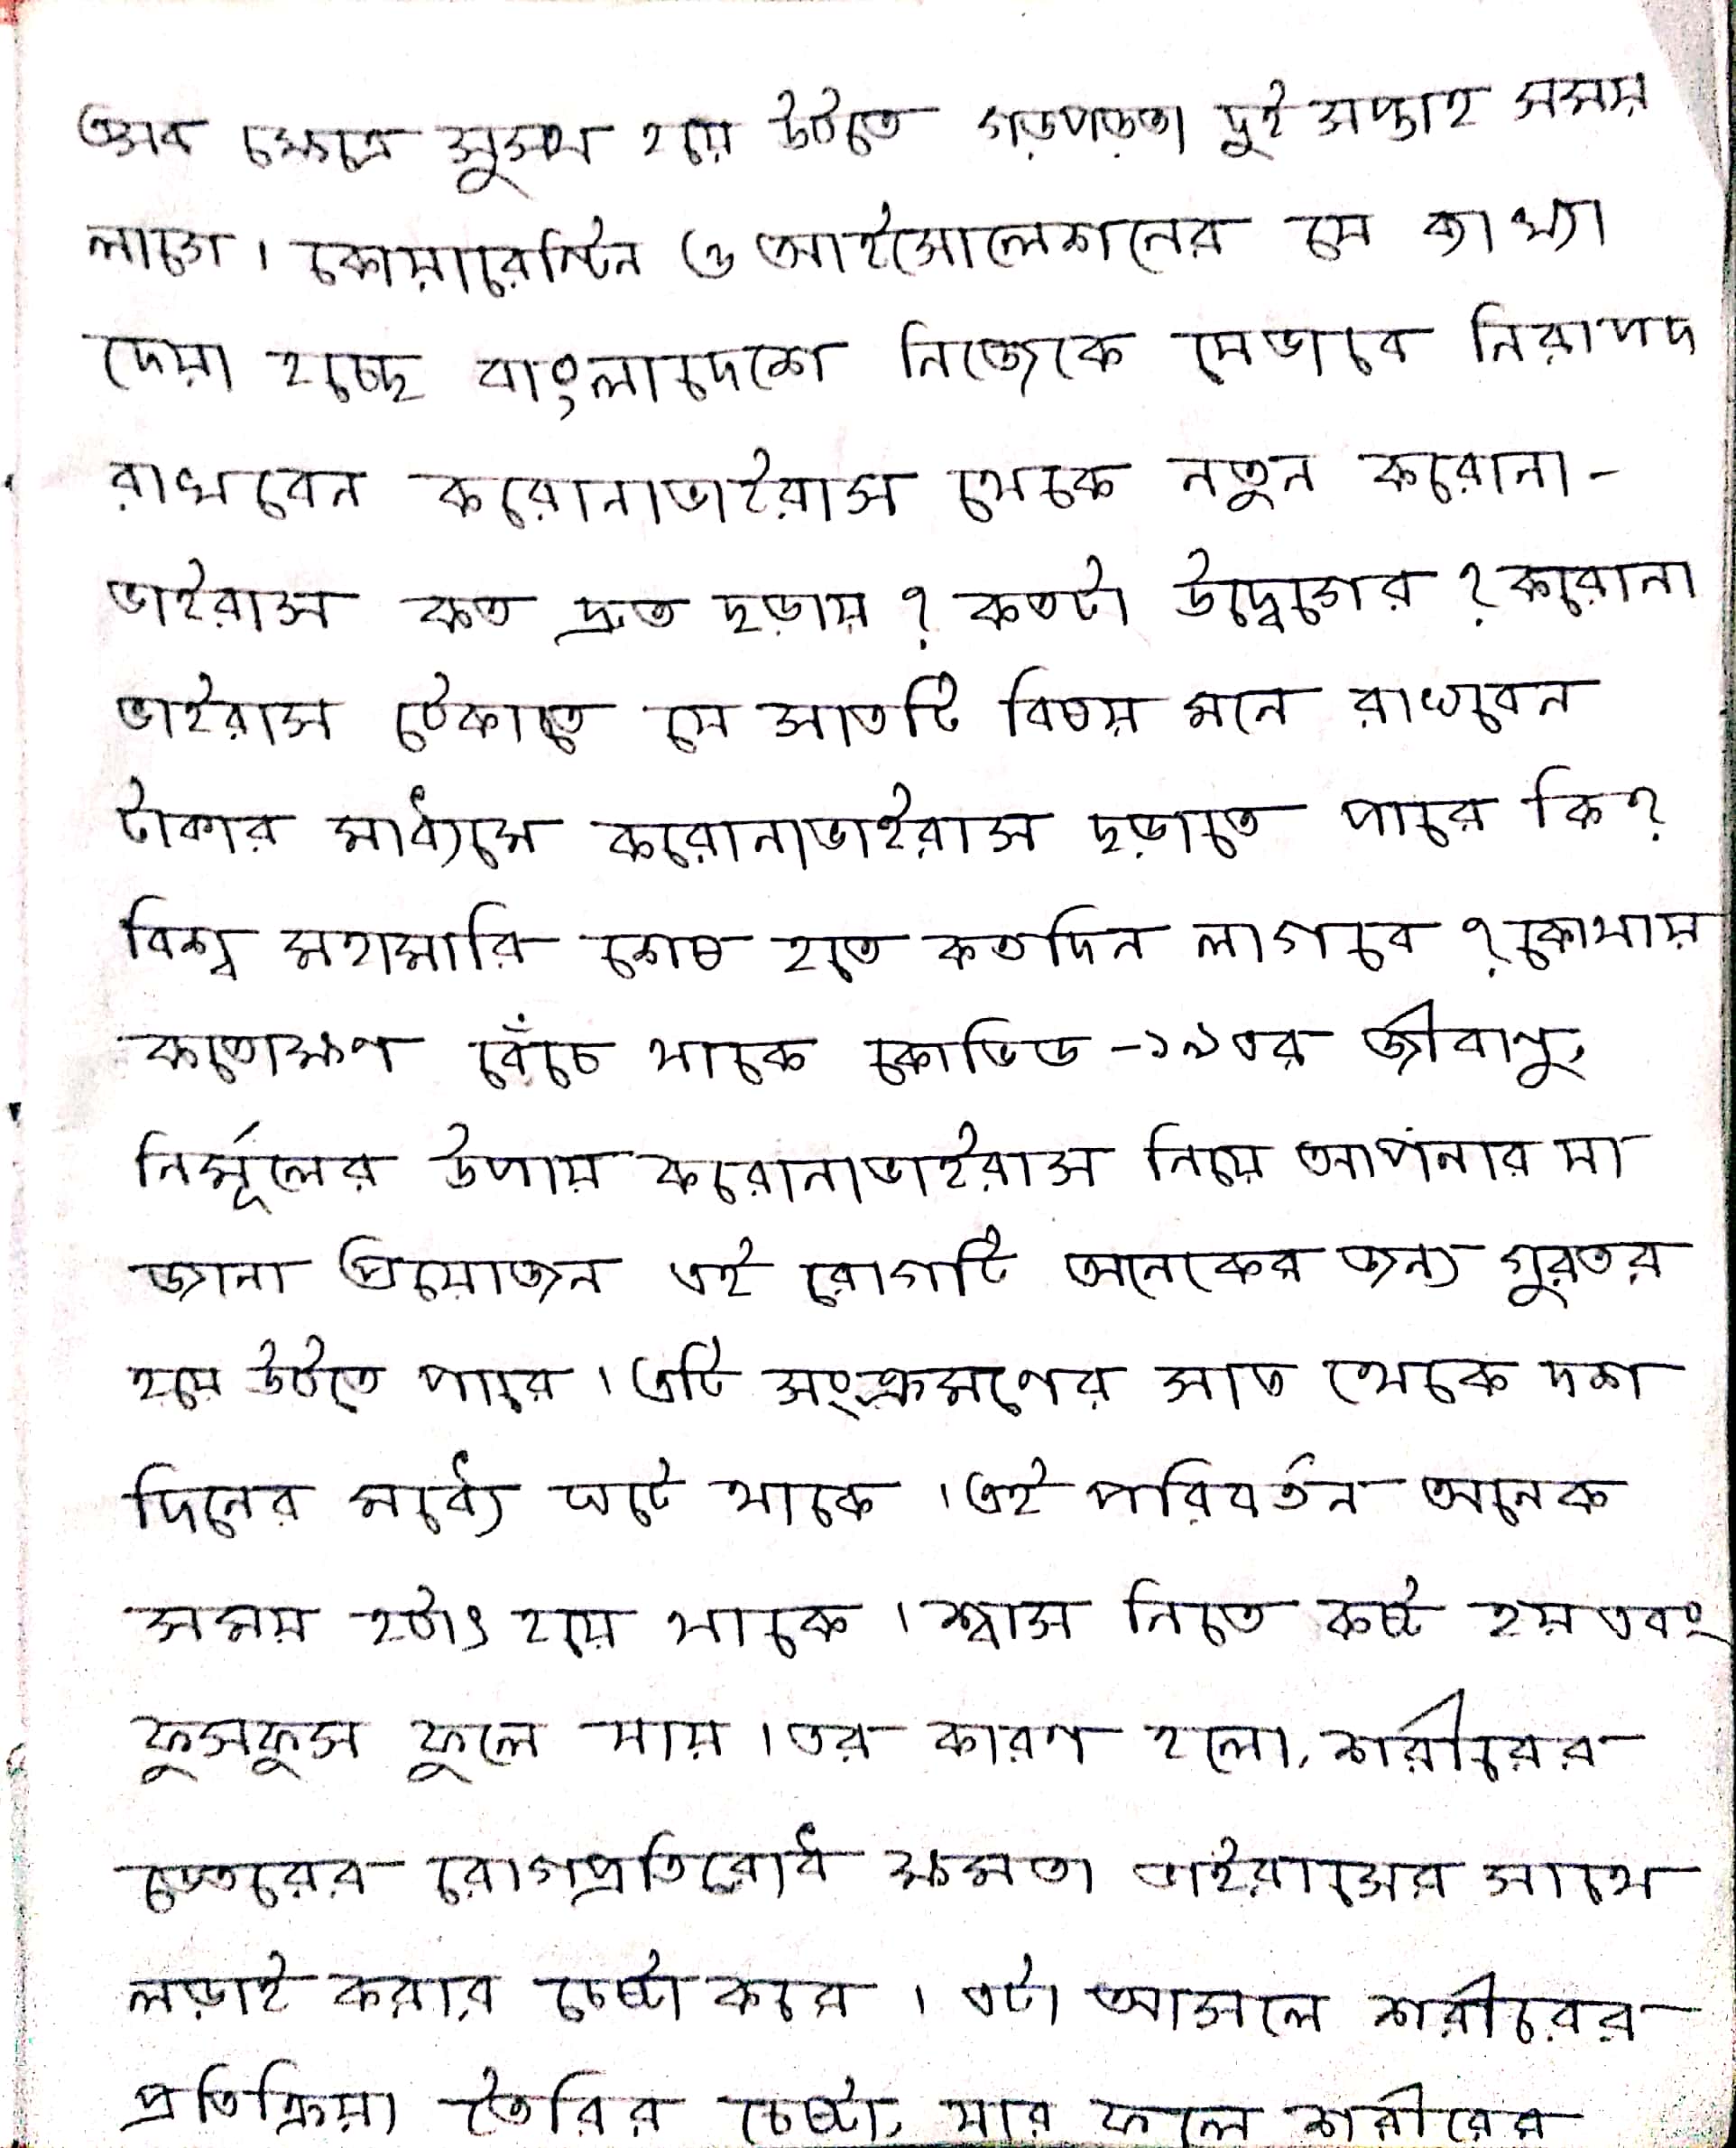 এসব ক্ষেত্রে সুস্থ হয়ে উঠতে গড়পড়তা দুই সপ্তাহ সময়
লাগে। কোয়ারেন্টিন ও আইসোলেশনের যে ব্যাখ্যা
দেয়া হচ্ছে বাংলাদেশে নিজেকে যেভাবে নিরাপদ
রাখবেন করোনাভাইরাস থেকে নতুন করোনা-
ভাইরাস কত দ্রুত ছড়ায়? কতটা উদ্বেগের? করোনা
ভাইরাস ঠেকাতে যে সাতটি বিষয় মনে রাখবেন
টাকার মাধ্যমে করোনাভাইরাস ছড়াতে পারে কি?
বিশ্ব মহামারি শেষ হতে কতদিন লাগবে? কোথায়
কতোক্ষণ বেঁচে থাকে কোভিড-১৯এর জীবাণু,
নির্মূলের উপায় করোনাভাইরাস নিয়ে আপনার যা
জানা প্রয়োজন এই রোগটি অনেকের জন্য গুরতর
হয়ে উঠতে পারে। এটি সংক্রমণের সাত থেকে দশ
দিনের মধ্যে ঘটে থাকে। এই পরিবর্তন অনেক
সময় হঠাৎ হয়ে থাকে। শ্বাস নিতে কষ্ট হয় এবং
ফুসফুস ফুলে যায়। এর কারণ হলো, শরীরের
ভেতরের রোগপ্রতিরোধ ক্ষমতা ভাইরাসের সাথে
লড়াই করার চেষ্টা করে। এটা আসলে শরীরের
প্রতিক্রিয়া তৈরির চেষ্টা, যার ফলে শরীরের